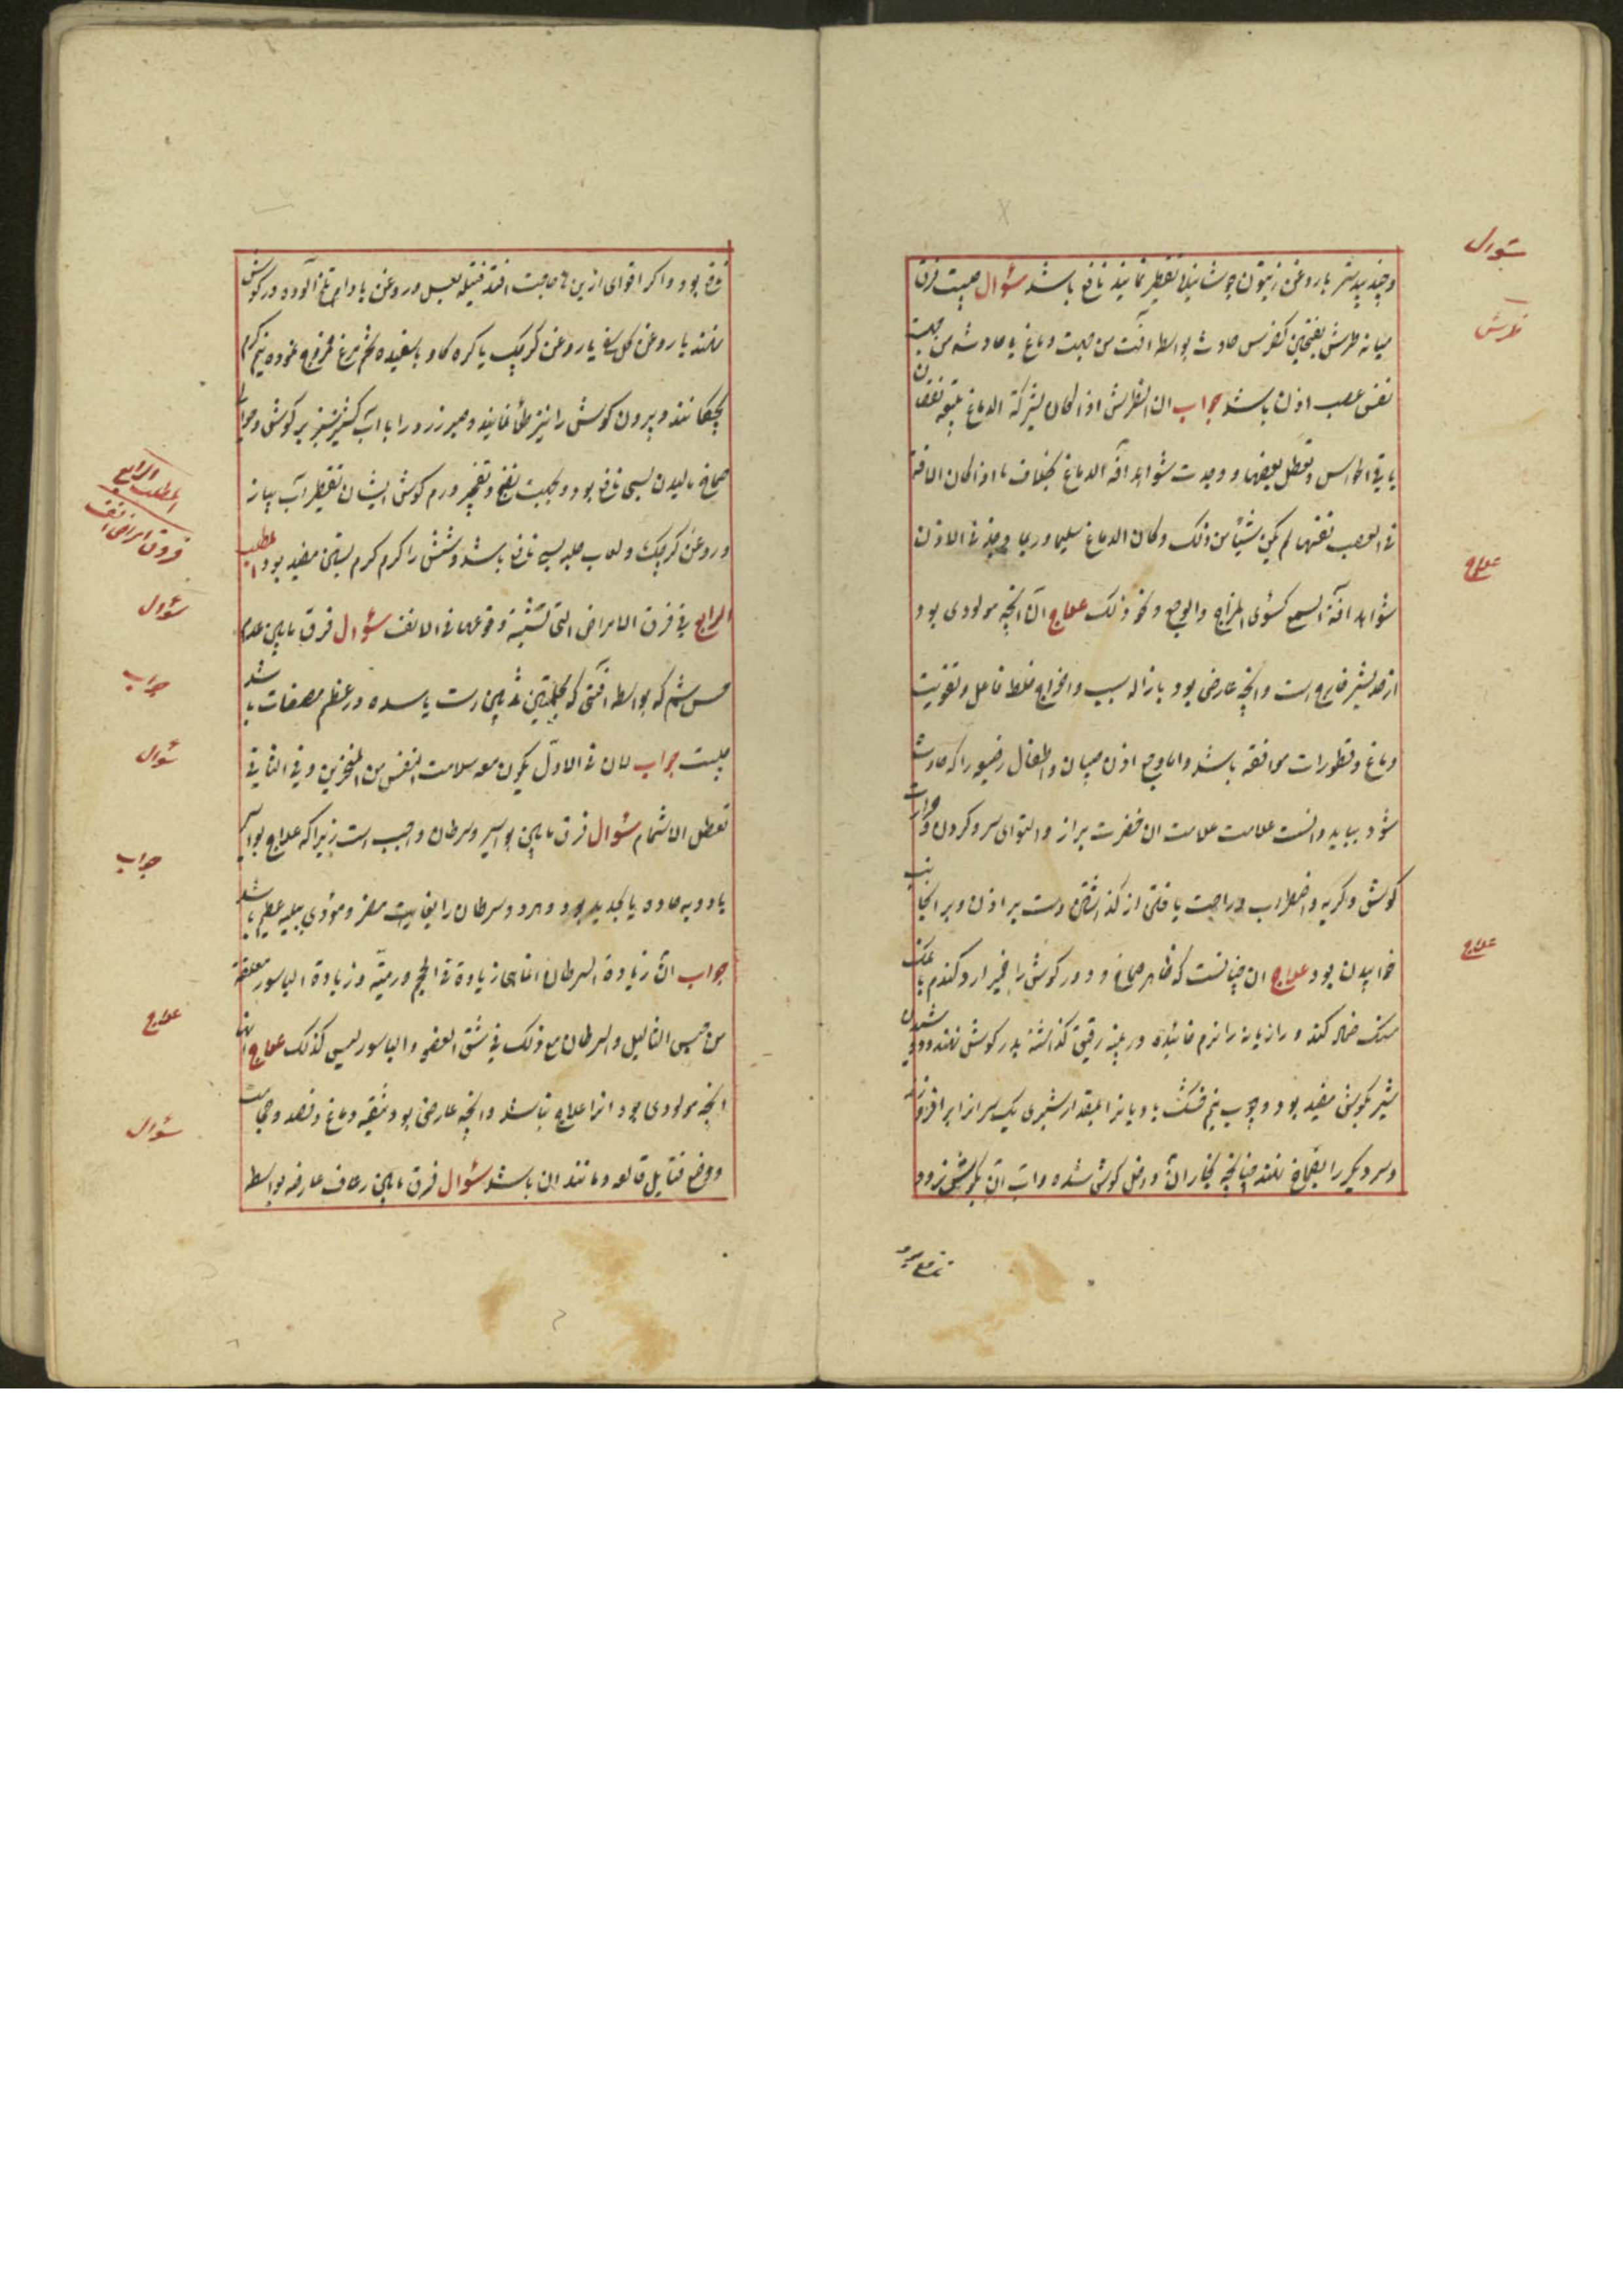 سؤال
وجند بیدستر با روغن زیتون جوشانیده تقطیر نمایند نافع باشد سؤال چیست فرق
طرش
میانه طرش بفتحتین کفرس حادث بواسطه آفت من جهت دماغ یا حادث من جهت
نفس عصب اذن باشد جواب ان الطرش اذا کان بشرکة الدماغ یتبعه نقصان
باقی الحواس وتعطل بعضها ووجدت شواهد آفة الدماغ بخلاف ما اذا کان الآفة
فی العصب نفسها لم یکن شیئا من ذلک وکان الدماغ سلیما وربما وجد فی الاذن
علاج
شواهد آفة السمع کسوئ المزاج والوجع ونحو ذلک علاج آن آنچه مولودی بود
از حد بشر خارج است وآنچه عارضی بود بازاله سبب واخراج خلط فاعل وتقویت
دماغ وقطورات موافقه باشد واما وجع اذن صبیان واطفال رضیع را که حادث
شود بباید دانست علامت علامت ان خضرت براز والتوای سر وکردن وحرارت
کوش وکریه واضطراب وراحت یافتن از کذاشتن دست بر اذن وبر آنجانب
علاج
خوابیدن بود علاج ان چنانست که ظاهر صماخ ودور کوش را خمیر ارد کندم با نمک
سنک ضماد کنند ورازیانه را نرم خائیده در پنبه رقیق کذاشته بدر کوش نهند ودوشیدن
شیر بکوش مفید بود وچوب نیم خشک با دیانه را بمقدار شبری یک سر انرا بر افروزند
وسر دیکر را بصماخ نهند چنانچه بخار ان داخل کوش شده واب ان بکوش نرود
نافع بود
نافع بود واکر اقوای ازین ها حاجت افتد فتیله بعسل وروغن بادام تلخ آلوده در کوش
نهند یا روغن کل سرخ یا روغن کرچک یا کره کاو با سفیده تخم مرغ ممزوج نموده نیم کرم
بچکانند وبیرون کوش را نیز طلا نمایند وصبر زرد را با اب کشنیز سبز بر کوش وحوالی
صماخ مالیدن بسی نافع بود وبجهت نضج وتفجیر ورم کوش ایشان تقطیر آب پیاز
المطلب الرابع
فروق امراض انف
وروغن کرچک ولعاب حلبه بسی نافع باشد وشش را کرم کرم بستن مفید بود المطلب
سؤال
الرابع فی فرق الامراض التی تشتبه وقوعها فی الانف سؤال فرق مابین عدم
جواب
حس شم که بواسطه آفتی که بحلمتین ثدیین است یا سده در عظم مصفات باشد
سؤال
چیست جواب لان فی الاول یکون معه سلامت النفس من المنخرین وفی الثانی
تعطل الاشمام سؤال فرق مابین بواسیر وسرطان واجب است زیرا که علاج بواسیر
جواب
بادویه حاده یا بحدید بود وبرد وسرطان را بغایت مضر ومودی ببلیه عظیم باشد
جواب انّ زیادة السرطان انما هی زیادة فی الحجم ورمیّه وزیادة الباسور معلقة
علاج
من جنس الثالیل والسرطان مع ذلک فی شق العضو والباسور لیس کذلک علاج آنها
آنچه مولودی بود انرا علاج نباشد وآنچه عارضی بود تنقیه دماغ وفصد وحجامت
سؤال
ووضع فتایل قالعه ومانند ان باشد سؤال فرق مابین رعاف عارضه بواسطه